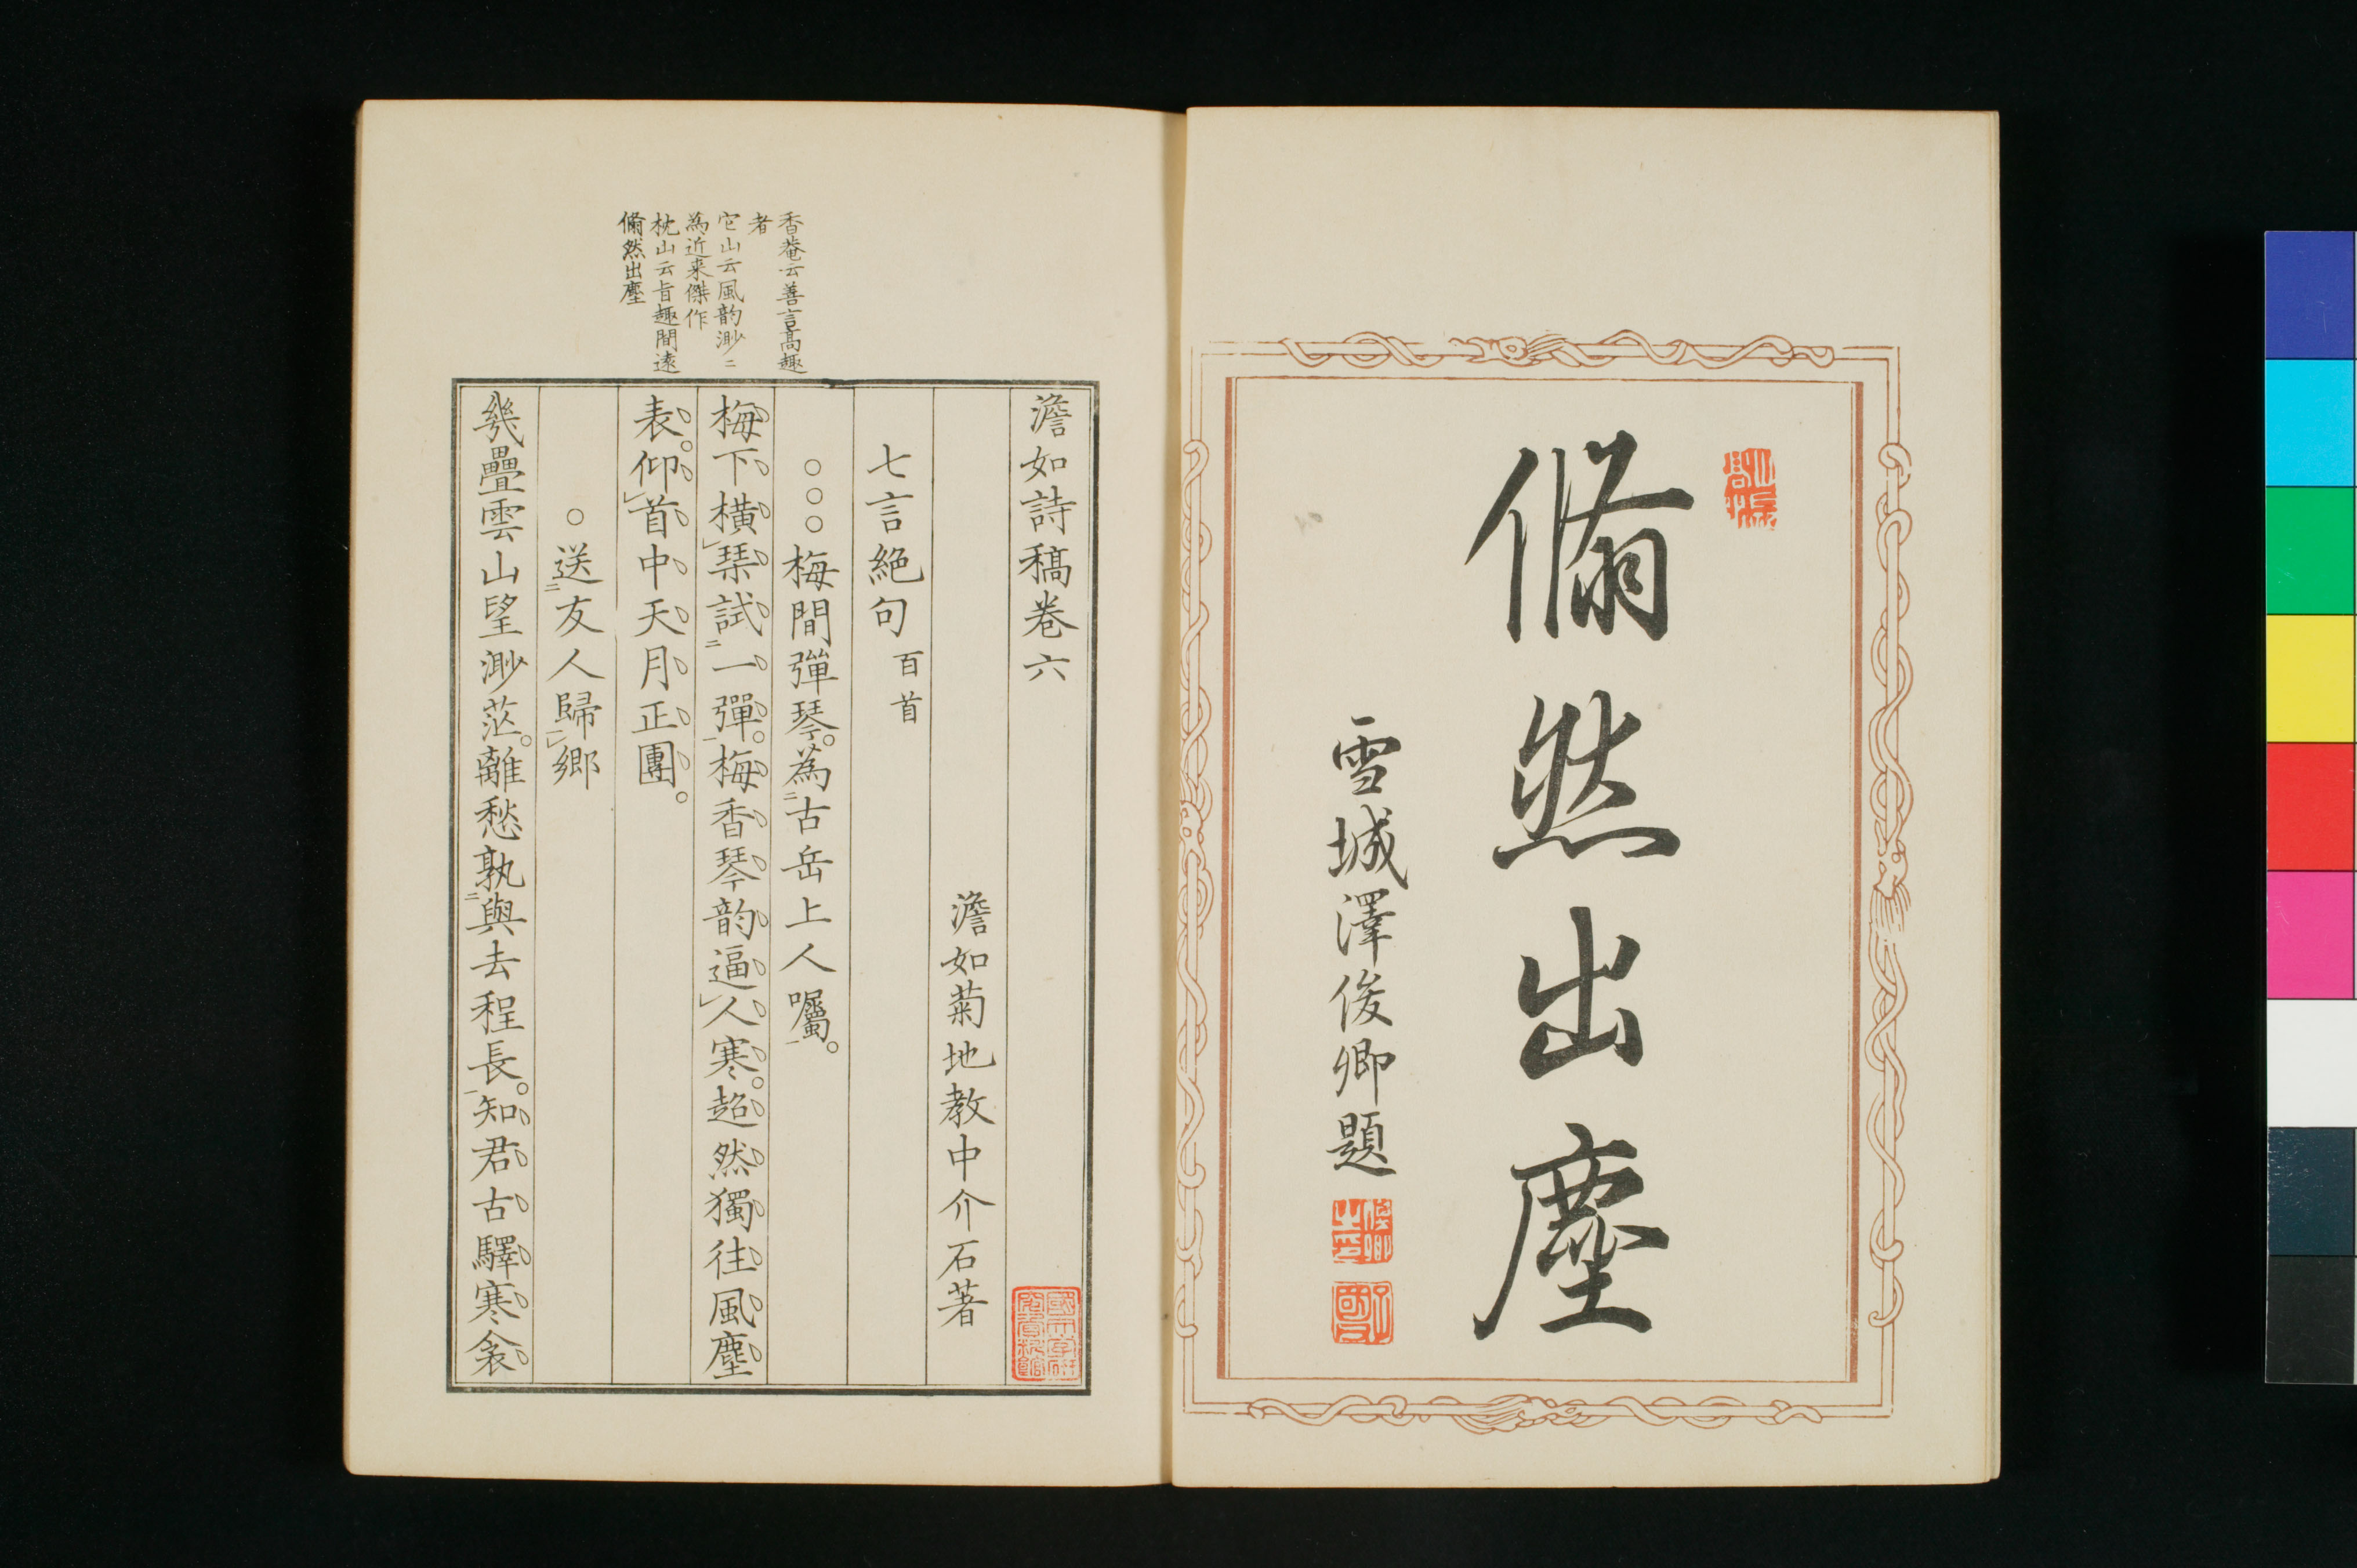 翛然出塵
雪城澤俊卿題
俊卿之印
澹如詩稿卷六
澹如菊地教中介石著
七言絕句 百首
○○○梅間彈琴。為二古岳上人囑一。
梅下橫レ琹試二一彈一。梅香琴韵逼レ人寒。超然獨往風塵
表。仰レ首中天月正團。
○送二友人歸一レ鄉
幾疊雲山望渺茫。離愁孰二與去程長一。知君古驛寒衾
香菴云善言高趣
者
它山云風韵渺〻
為近来傑作
枕山云旨趣間遠
翛然出塵